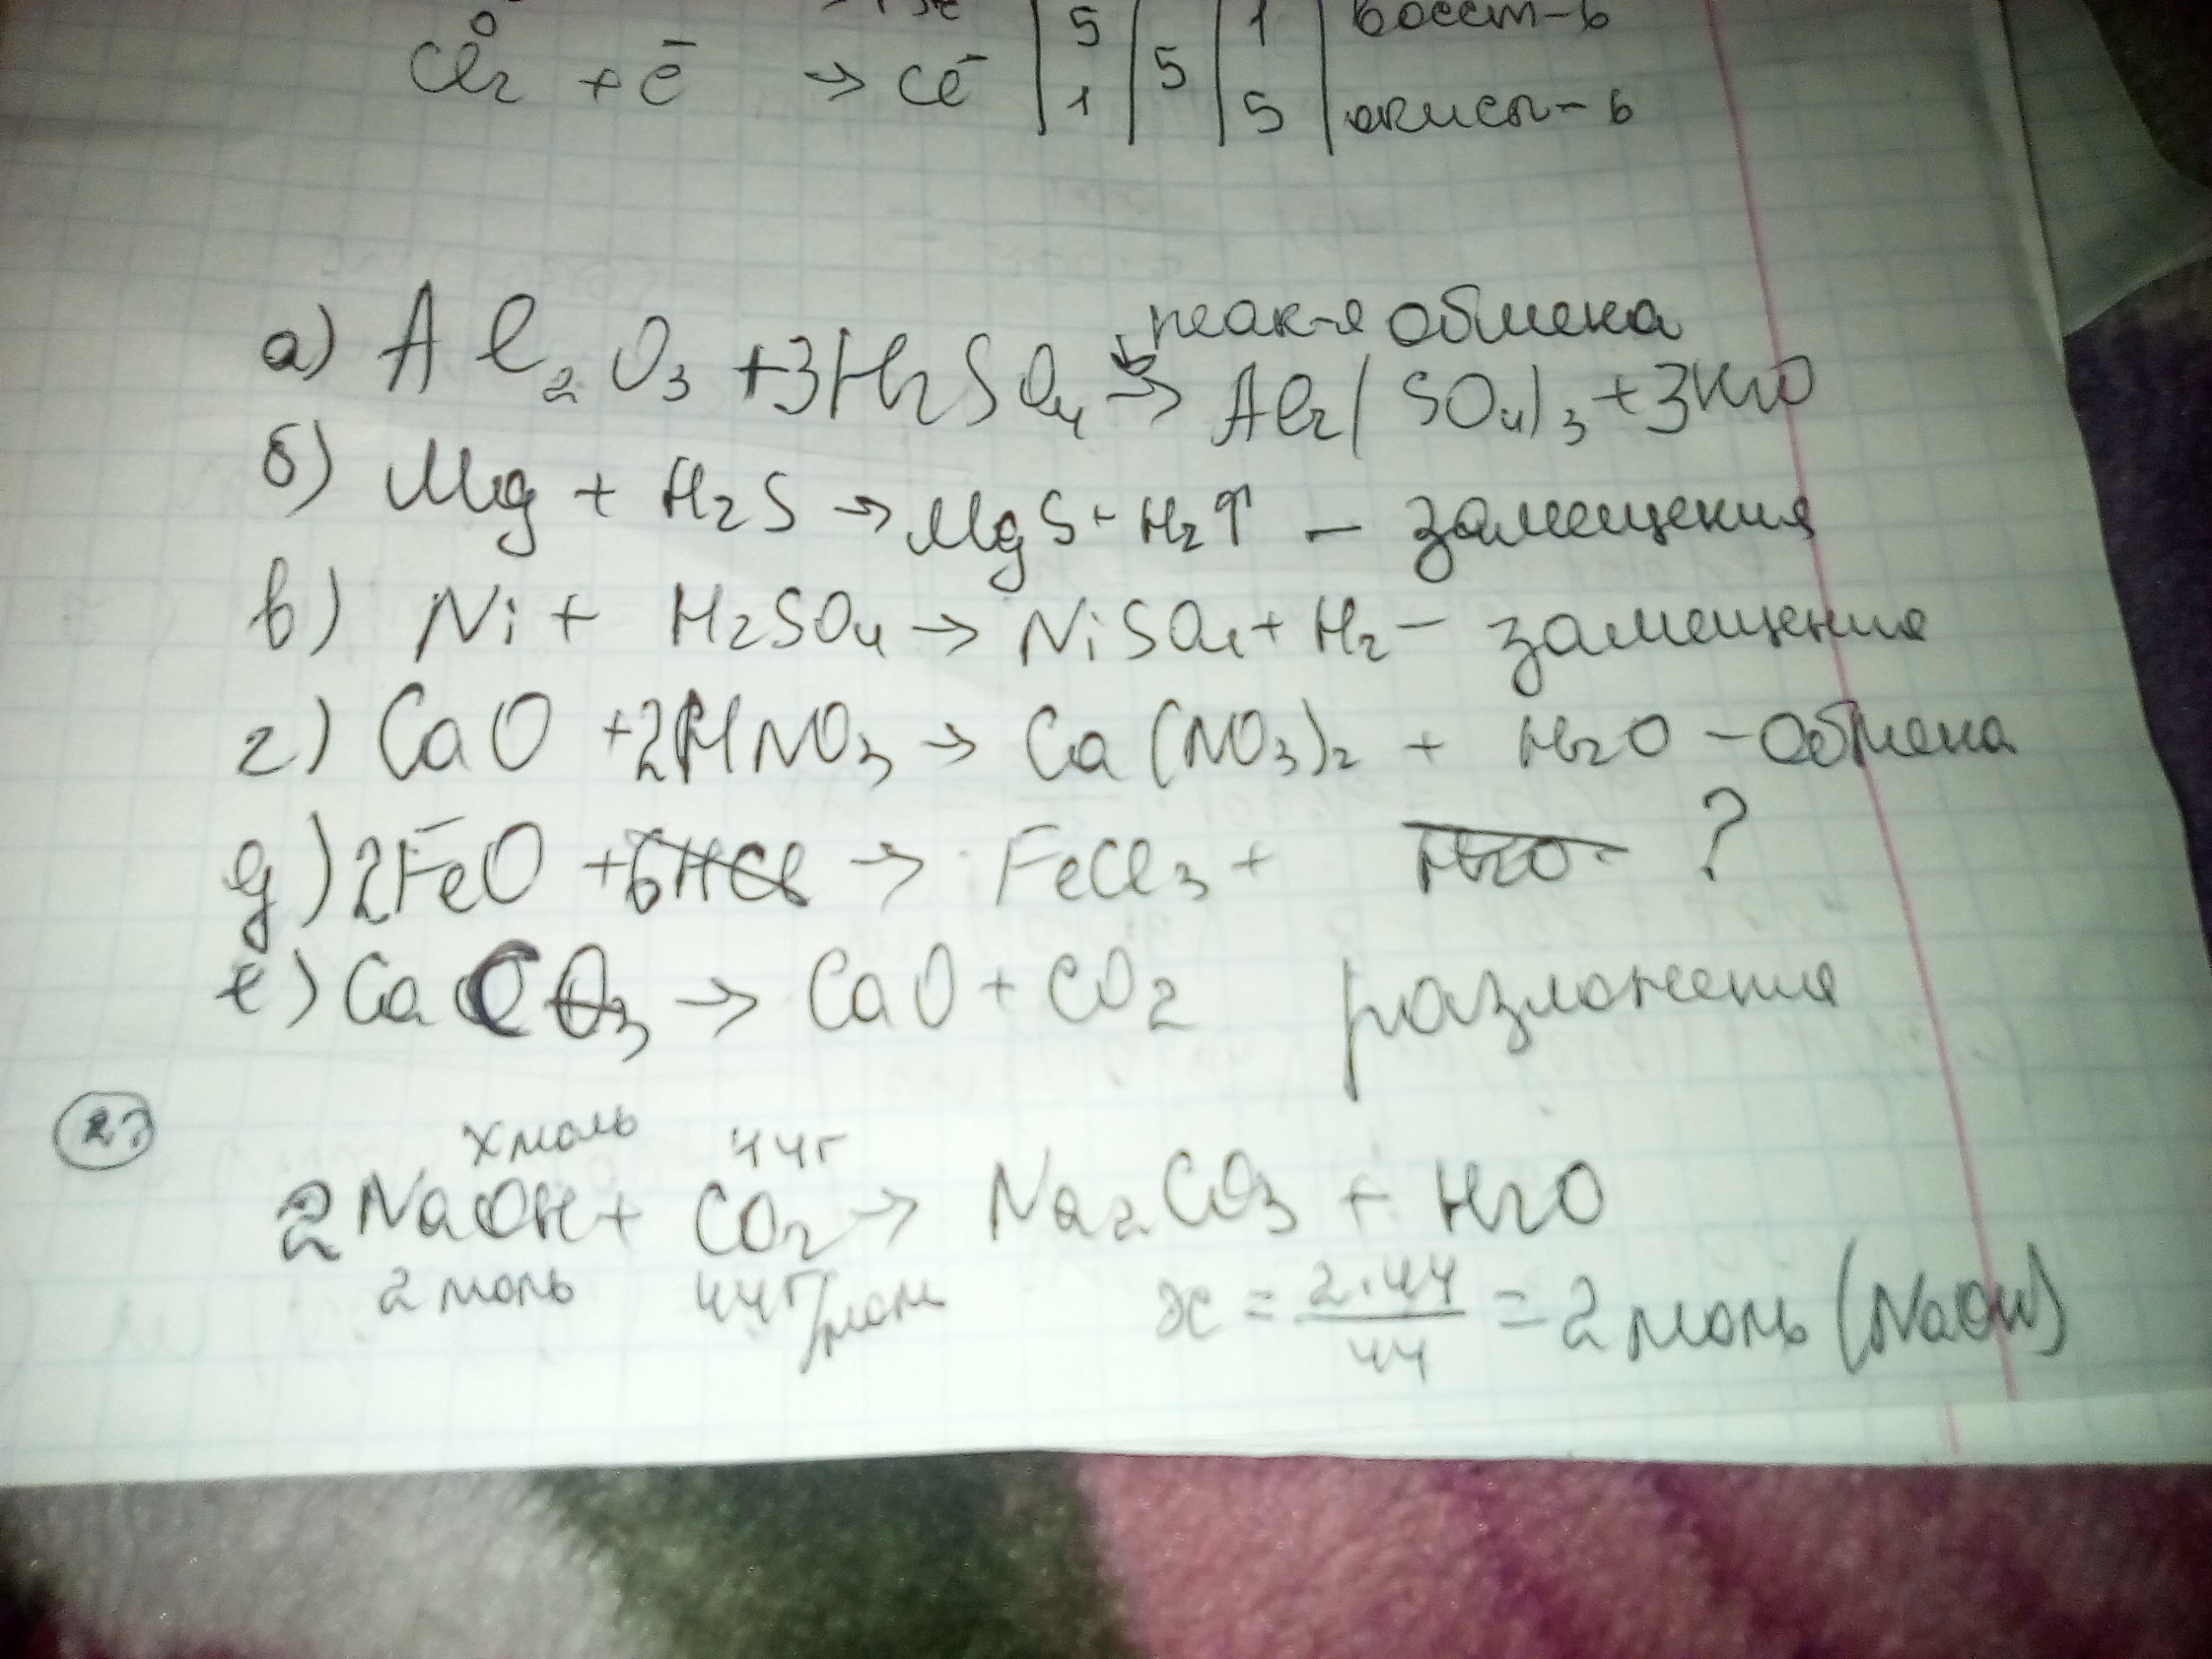 Cl₂⁰ + ē → Cl⁻ | 5 1 | 5 | 1 5 | восст-ь
окисл-ь
реак-я обмена
а) Al₂O₃ + 3H₂SO₄ → Al₂(SO₄)₃ + 3H₂O
б) Mg + H₂S → MgS + H₂↑ – замещения
в) Ni + H₂SO₄ → NiSO₄ + H₂ – замещения
г) CaO + 2HNO₃ → Ca(NO₃)₂ + H₂O – обмена
д) 2FeO + 6HCl → FeCl₃ + H₂O ?
е) CaCO₃ → CaO + CO₂ разложения
27
x моль 44г
2NaOH + CO₂ → Na₂CO₃ + H₂O
2 моль 44г/моль x = 2·44/44 = 2 моль (NaOH)